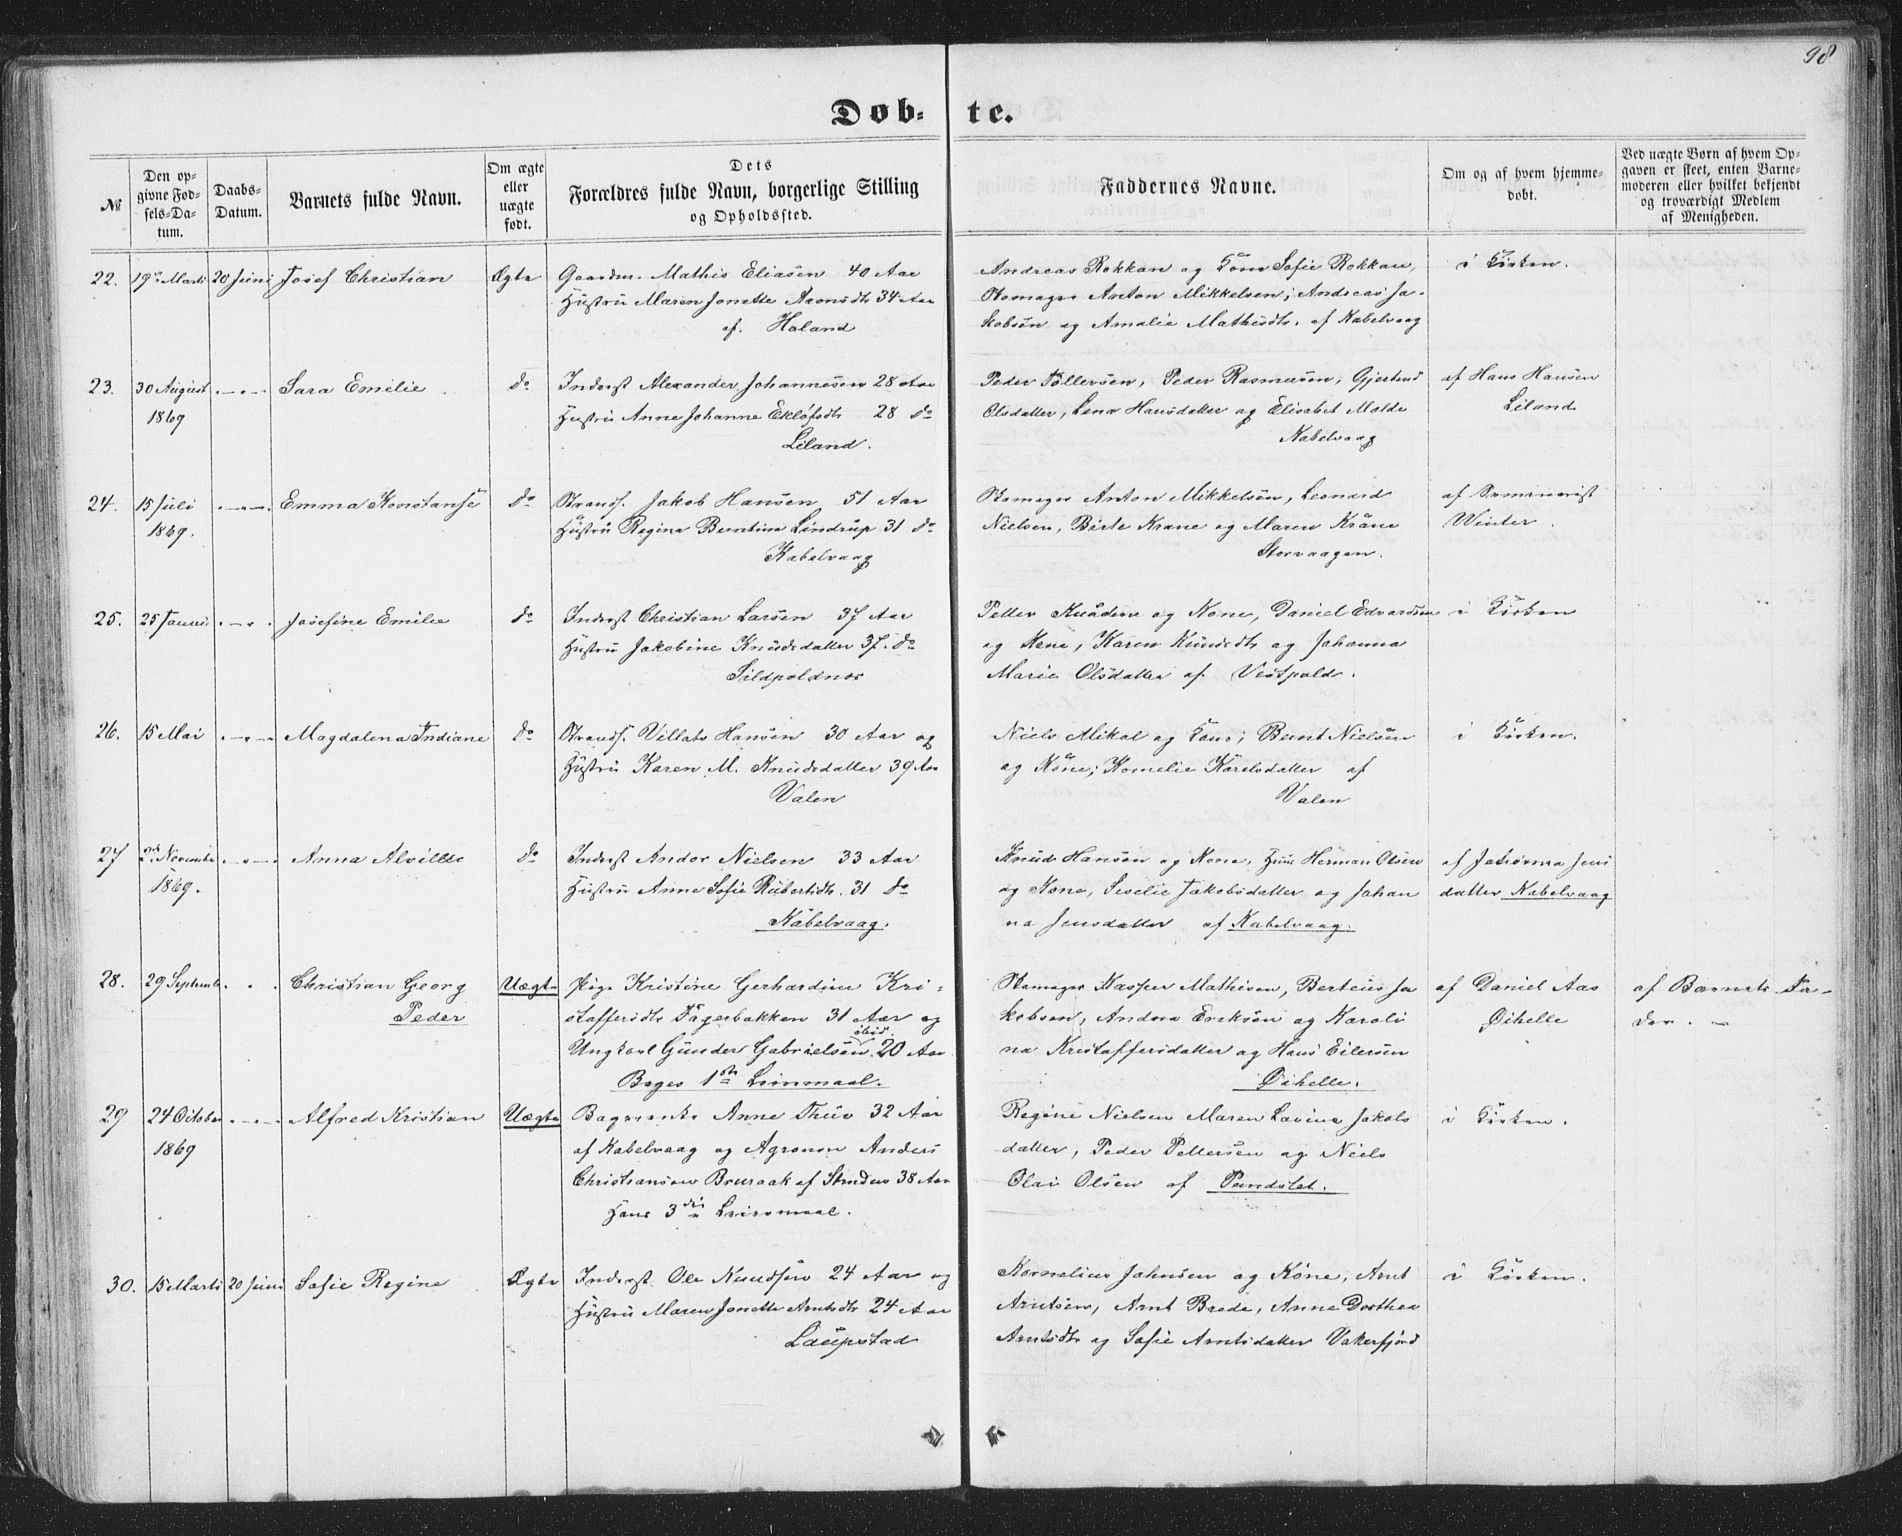 98
Døb- te.
№
Den op-
givne Fød-
sels-Da-
tum.
Daabs-
Datum.
Barnets fulde Navn.
Om ægte
eller
uægte
født.
Dets
Forældres fulde Navn, borgerlige Stilling
og Opholdssted.
Faddernes Navne.
Om og af hvem hjemme-
døbt.
Ved uægte Børn af hvem Op-
gaven er skeet, enten Barne-
moderen eller hvilket bekjendt
og troværdigt Medlem
af Menigheden.
22. 19 Marti 20 Juni Josef Christian Ægte Gaardm. Mathis Eliasen 40 Aar
Hustru Maren Jonette Aronsdtr 34 Aar
af. Holand
Andreas Rokkan og Kone Sofie Rokkan,
Anton Mikkelsen; Andreas Ja-
kobsen og Amalie Mathisdtr. af Kabelvaag
i Kirken.
23. 30 August Sara Emilie do Inderst Alexander Johannesen 28 Aar
1869 Hustru Anne Johanne 28 do
Liland.
Peder Pedersen, Peder Rasmussen,
Olsdatter, Lena Hansdatter og Elisabet Molde
Kabelvaag
af Hans Hansen
Liland
24. 15 Juli Emma Konstanse do Strands. Jakob Hansen 51 Aar
1869. Hustru Regina Berntine Lindrup 31 do
Kabelvaag
Anton Mikkelsen, Leonard
Nielsen, Birte Krane og Maren Krane
Storvaagen.
af Seminarist
Winter.
25. 25 Januri Josefine Emilie do Inderst Christian Larsen 37 Aar
Hustru Jakobine Knudsdatter 37. do
Sildpoldnes
Petter og Kone, Daniel Edvardsen
og Kone, Karen Knudsdtr og Johanna
Marie Olsdatter af Vestpold.
i Kirken
26. 15 Mai Magdalena Indiane do Strands. Villats Hansen 30 Aar og
Hustru Karen M. Knudsdatter 39 Aar
Valen
Niels Mikal og Kone; Bernt Nielsen
og Kone; Kornelie Karelsdatter af
Valen
i Kirken.
27 Novemb. Anna Alvilde do Inderst Andor Nielsen 33 Aar
1869. Hustru Anne Sofie Robertsdtr. 31 do
Kabelvaag.
Knud Hansen og Kone, Herman Olsen
og Kone, Jakobsdatter og Johan
na Jensdatter af Kabelvaag.
af Johanna Jens
datter Kabelvaag
28. 29 Septemb. Christian Georg Uægte Pige Kristine Gerhardine Kri-
Peder staffersdtr Fagerbakken 31 Aar og
Ungkarl Gunder Gabrielsen ibid. 20 Aar
Beges 1ste Leirmaal.
Kasper Mathisen, Berteus Ja
kobsen, Andrea Eriksen og Karoli
na Kristaffersdatter og Hans Eilersen
Øihelle.
af Daniel Aas
Øihelle
af Barnets Fa-
der. -
29 24 October Alfred Kristian Uægte Anne 32 Aar
1869 af Kabelvaag og Agronom Anders
Christiansen af 38 Aar
Hans 3die Leiermaal.
Regine Nielsen Maren Lavina Jakobs
datter, Peder Pettersen og Niels
Olai Olsen af Pundslet.
i Kirken.
30. 15 Marti 20 Juni Sofie Regine Ægte Inderst. Ole Knudsen 24 Aar og
Hustru Maren Jonette Arntsdtr 24 Aar
Laupstad
Kornelius Johnsen og Kone, Arnt
Arntsen, Arnt Brede, Anne Dorthea
Arntsdtr og Sofie Arntsdatter Vaterfjord
i Kirken.